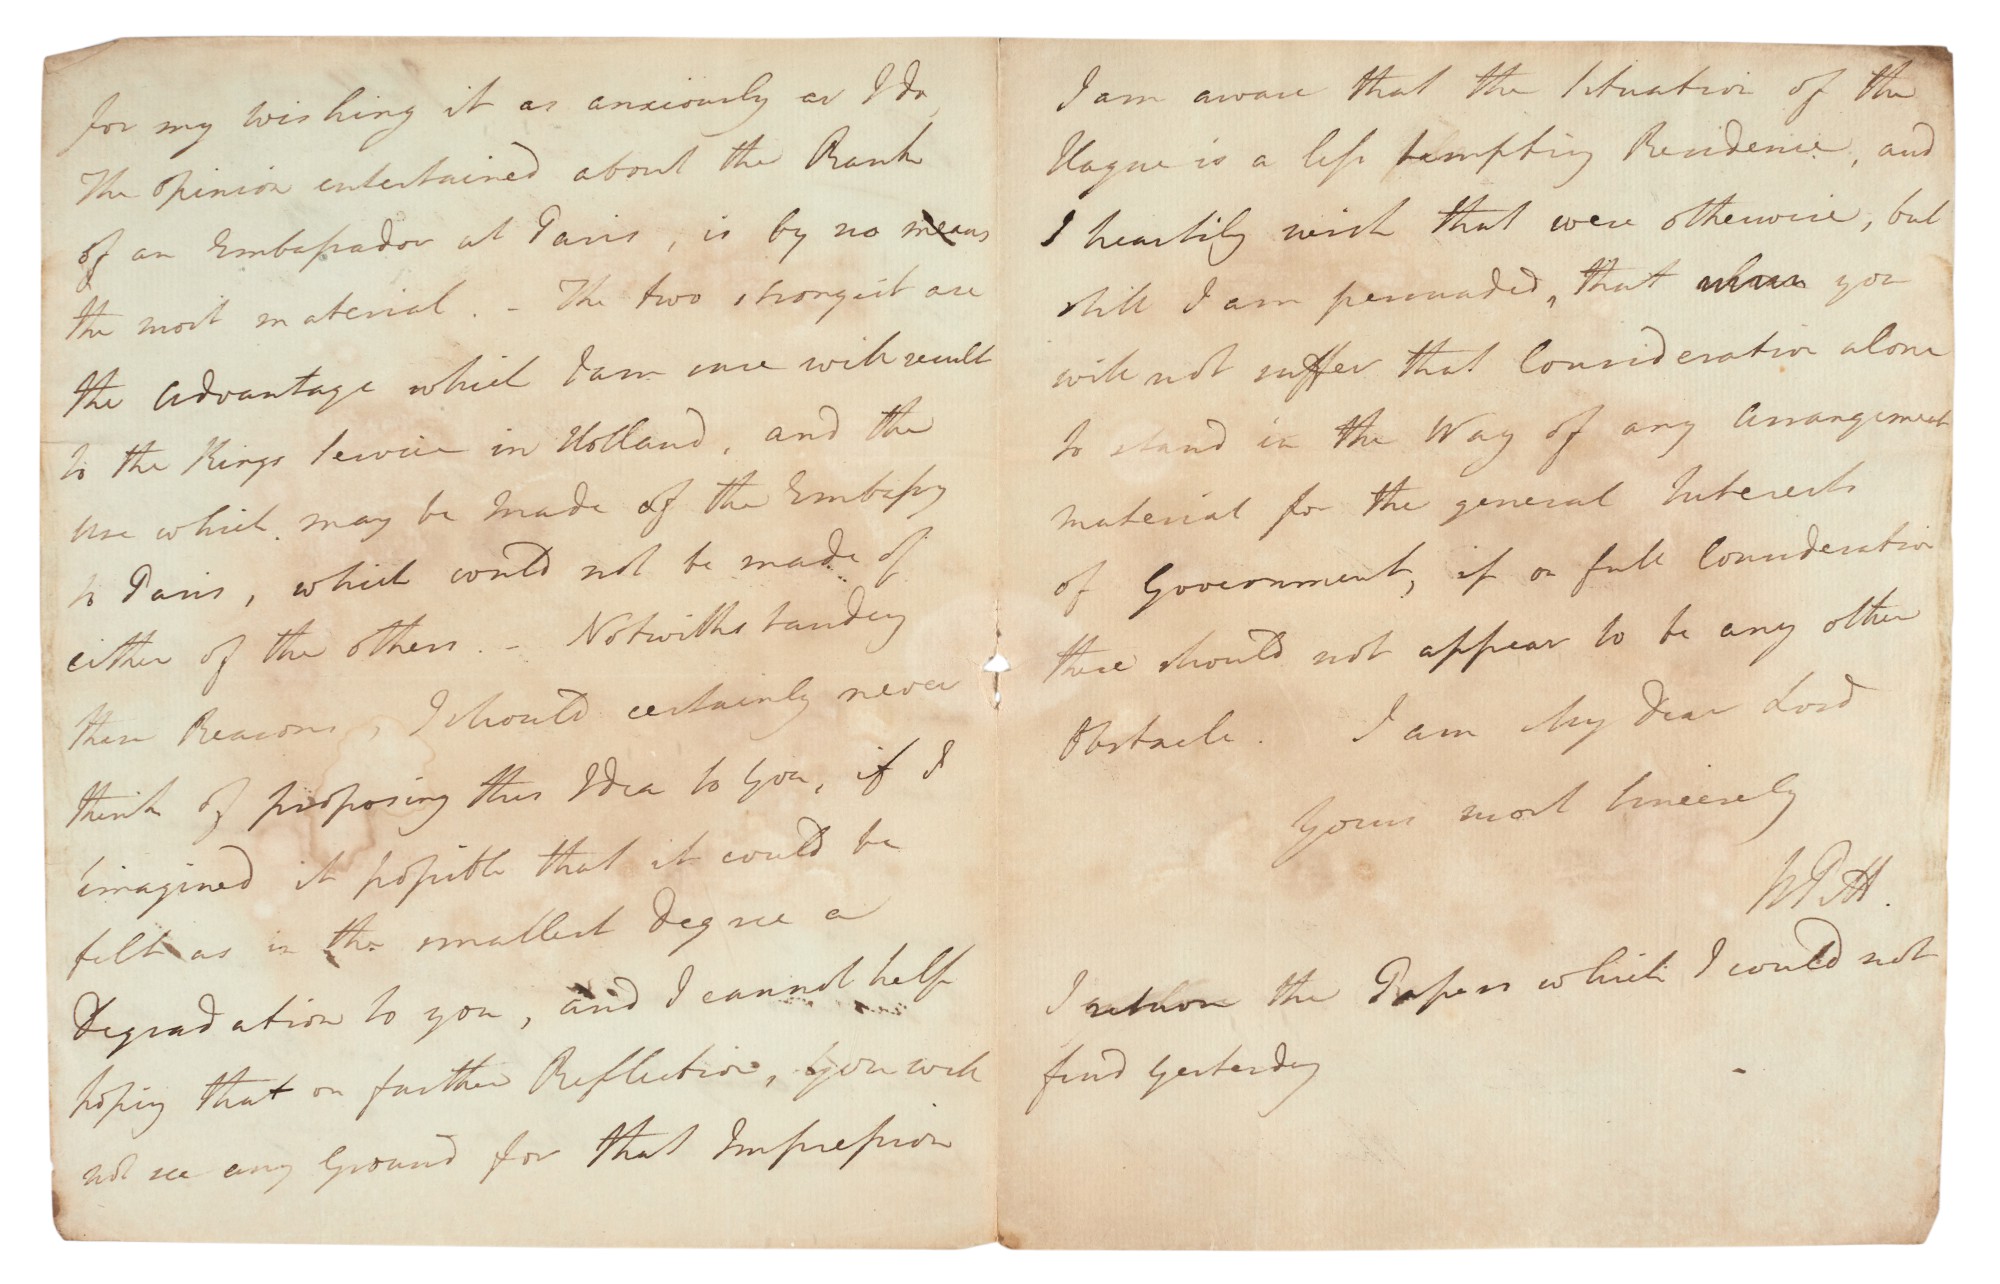 for my wishing it as anxiously as I do,
The opinion entertained about the Rank
of an Embassador at Paris, is by no means
the most material. - The two strongest are
the advantage which I am sure will result
to the Kings Service in Holland, and the
use which may be made of the Embassy
to Paris, which could not be made of
either of the others. - Notwithstanding
these Reasons, I should certainly never
think of proposing this Idea to you, if I
imagined it possible that it could be
felt as in the smallest Degree a
Degradation to you, and I cannot help
hoping that on further Reflection, you will
not see any Ground for that Impression
I am aware that the Situation of the
Hague is a less tempting Residence, and
I heartily wish that were otherwise, but
still I am persuaded, that you
will not suffer that Consideration alone
to stand in the Way of any Arrangement
material for the general Interests
of Government, if on full Consideration
there should not appear to be any other
Obstacle. I am My dear Lord
Yours most sincerely
W Pitt.
I return the Papers which I could not
find yesterday -